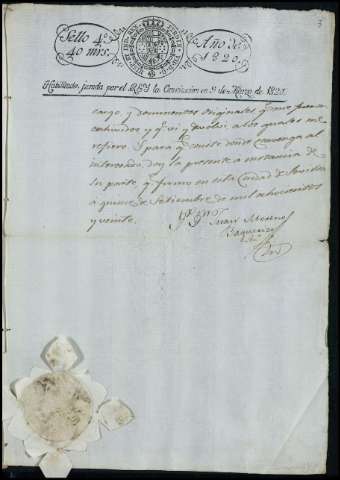 3
Sello 4º
40 mrs.
Año de
1820.
Habilitado, jurada por el REY la Constitucion en 9 de Marzo de 1820.
cargo, y documentos originales qe. me
exhividos y qe. vi y devolví, a los quales me
refiero. Y para qe. conste donde convenga al
interesado, doy la presente a instancia de
su parte, qe. firmo en esta Ciudad de Sevilla
á quince de Setiembre de mil ochocientos
y veinte.
Juan Moreno
Baquerizo